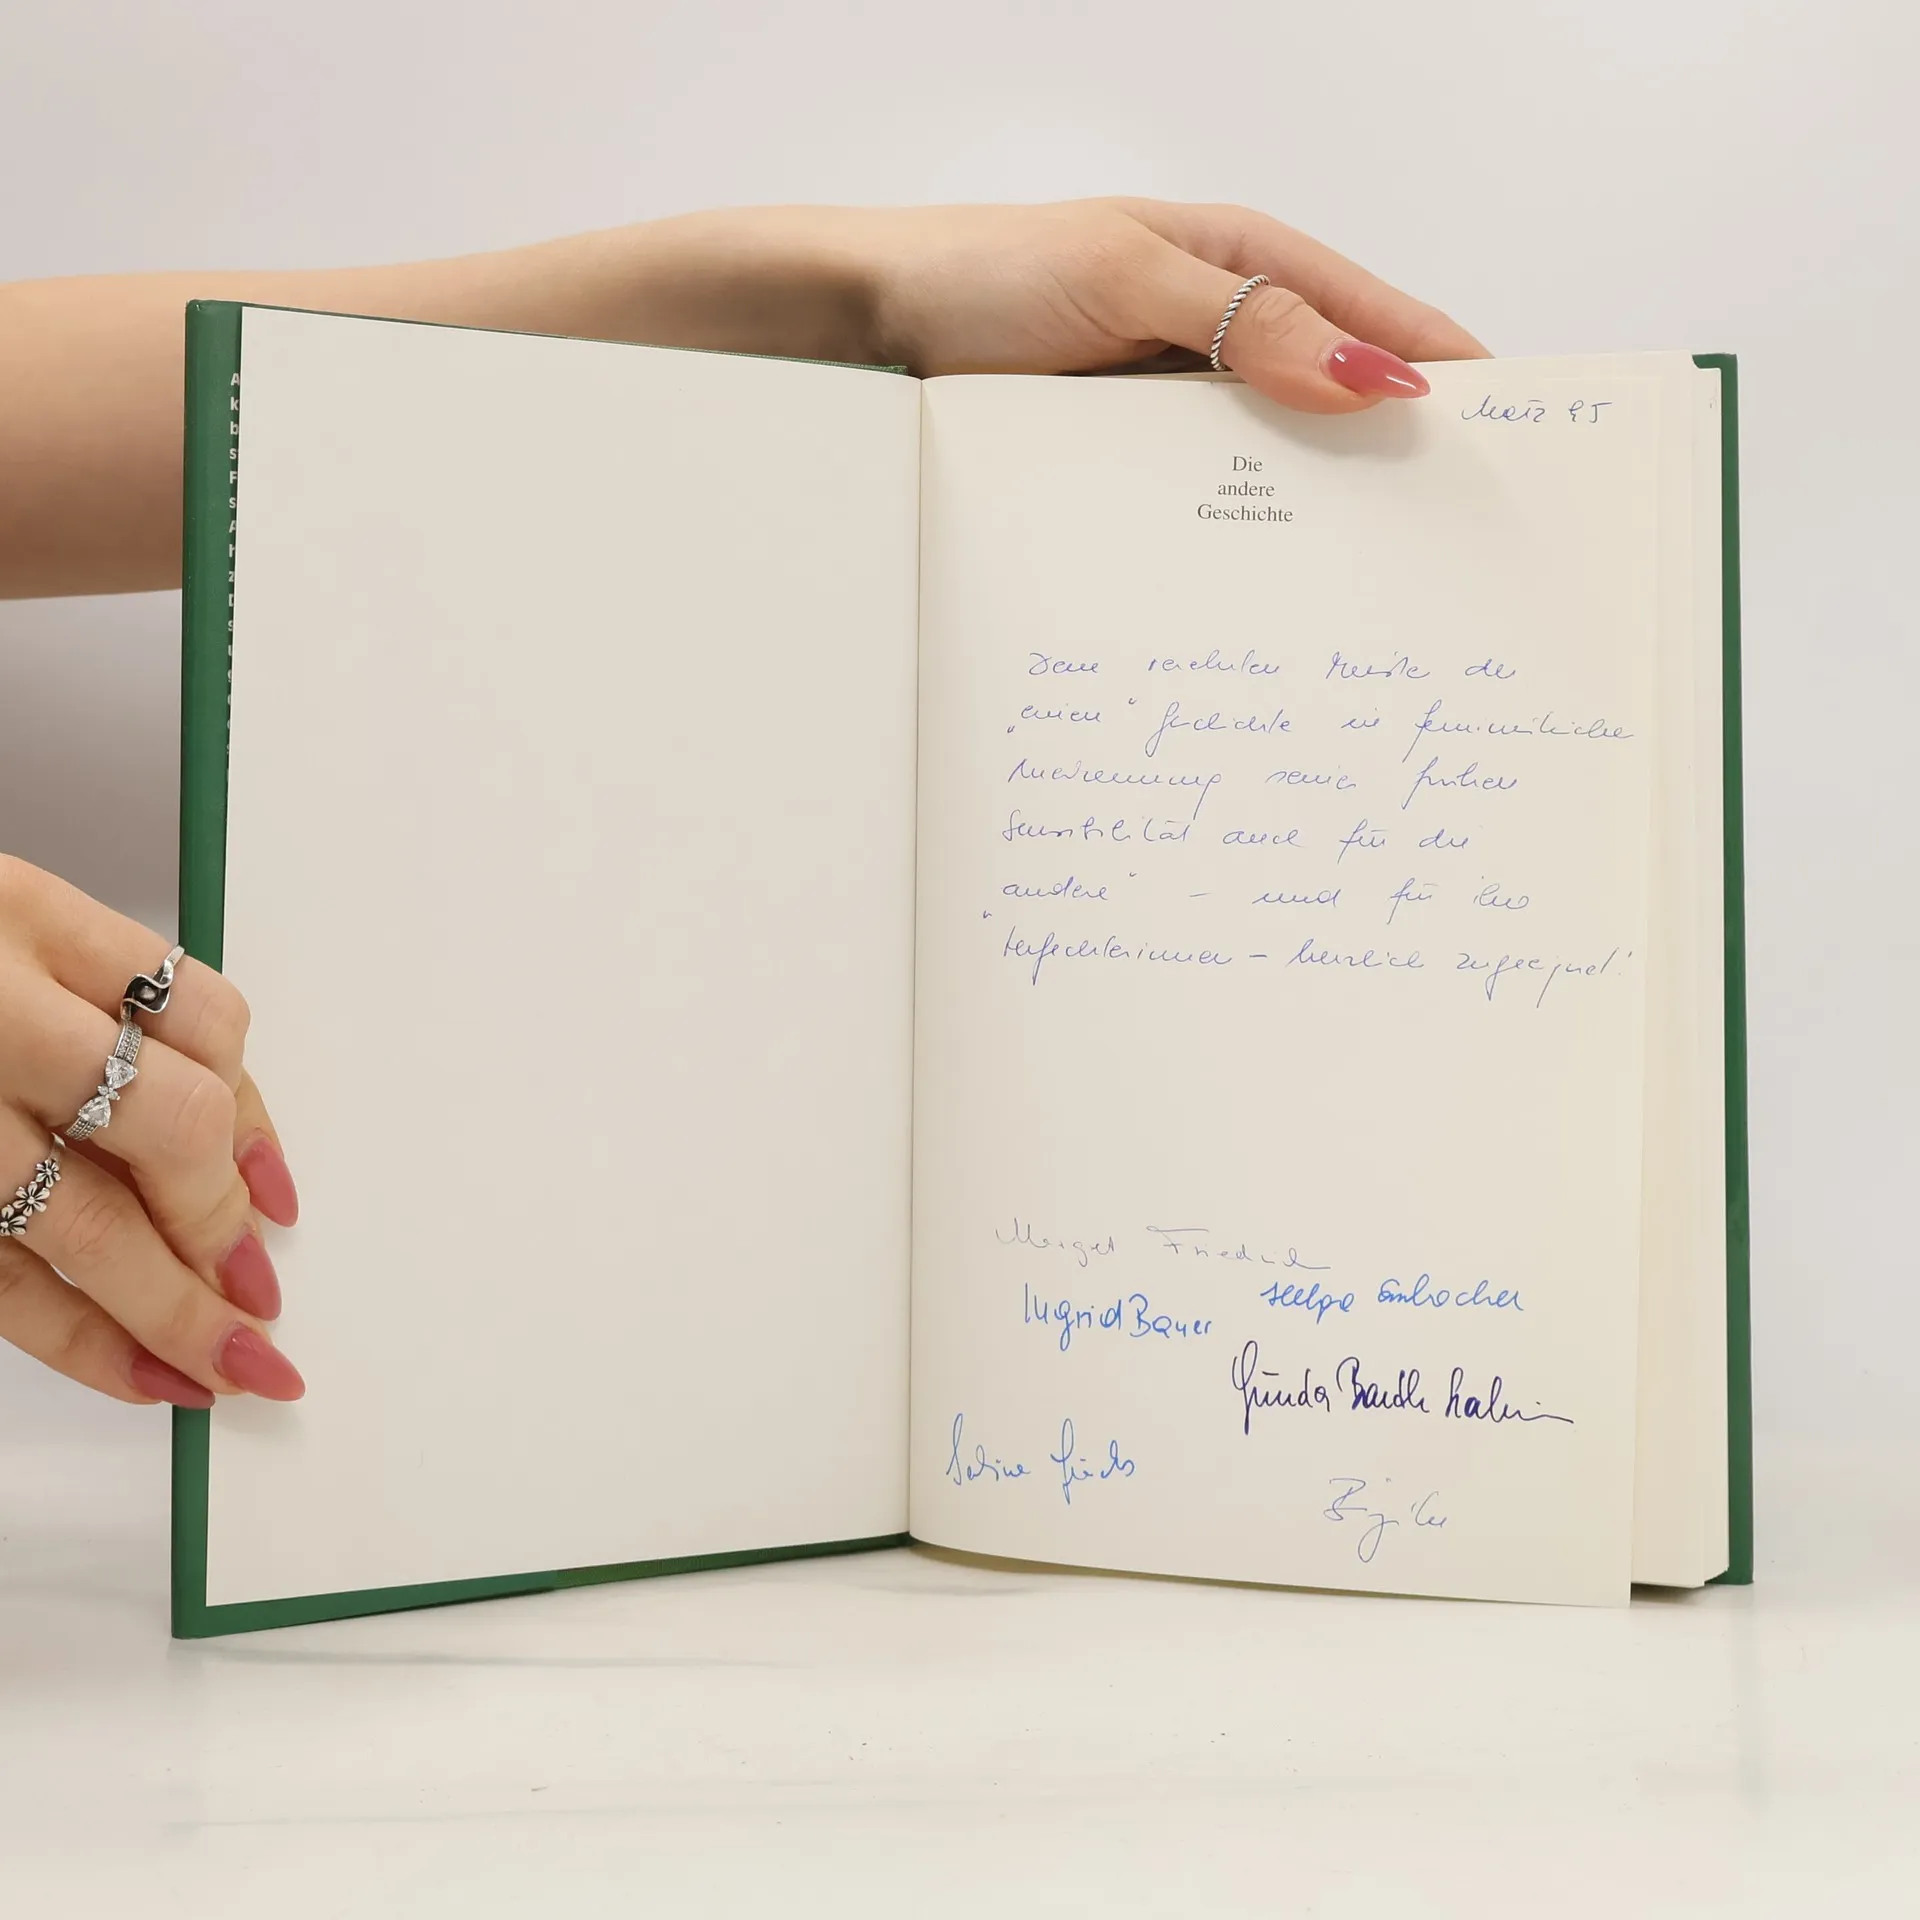 März 95
Die
andere
Geschichte
Dem verehrten Meister der
„einen" Geschichte in feministischer
Anerkennung seiner frühen
Sensibilität auch für die
„andere" – und für ihre
Verfechterinnen – herzlich zugeeignet!
Margret Friedrich
Ingrid Bauer Helga Embacher
Gunda Barth
Sabine Fuchs
Brigitte